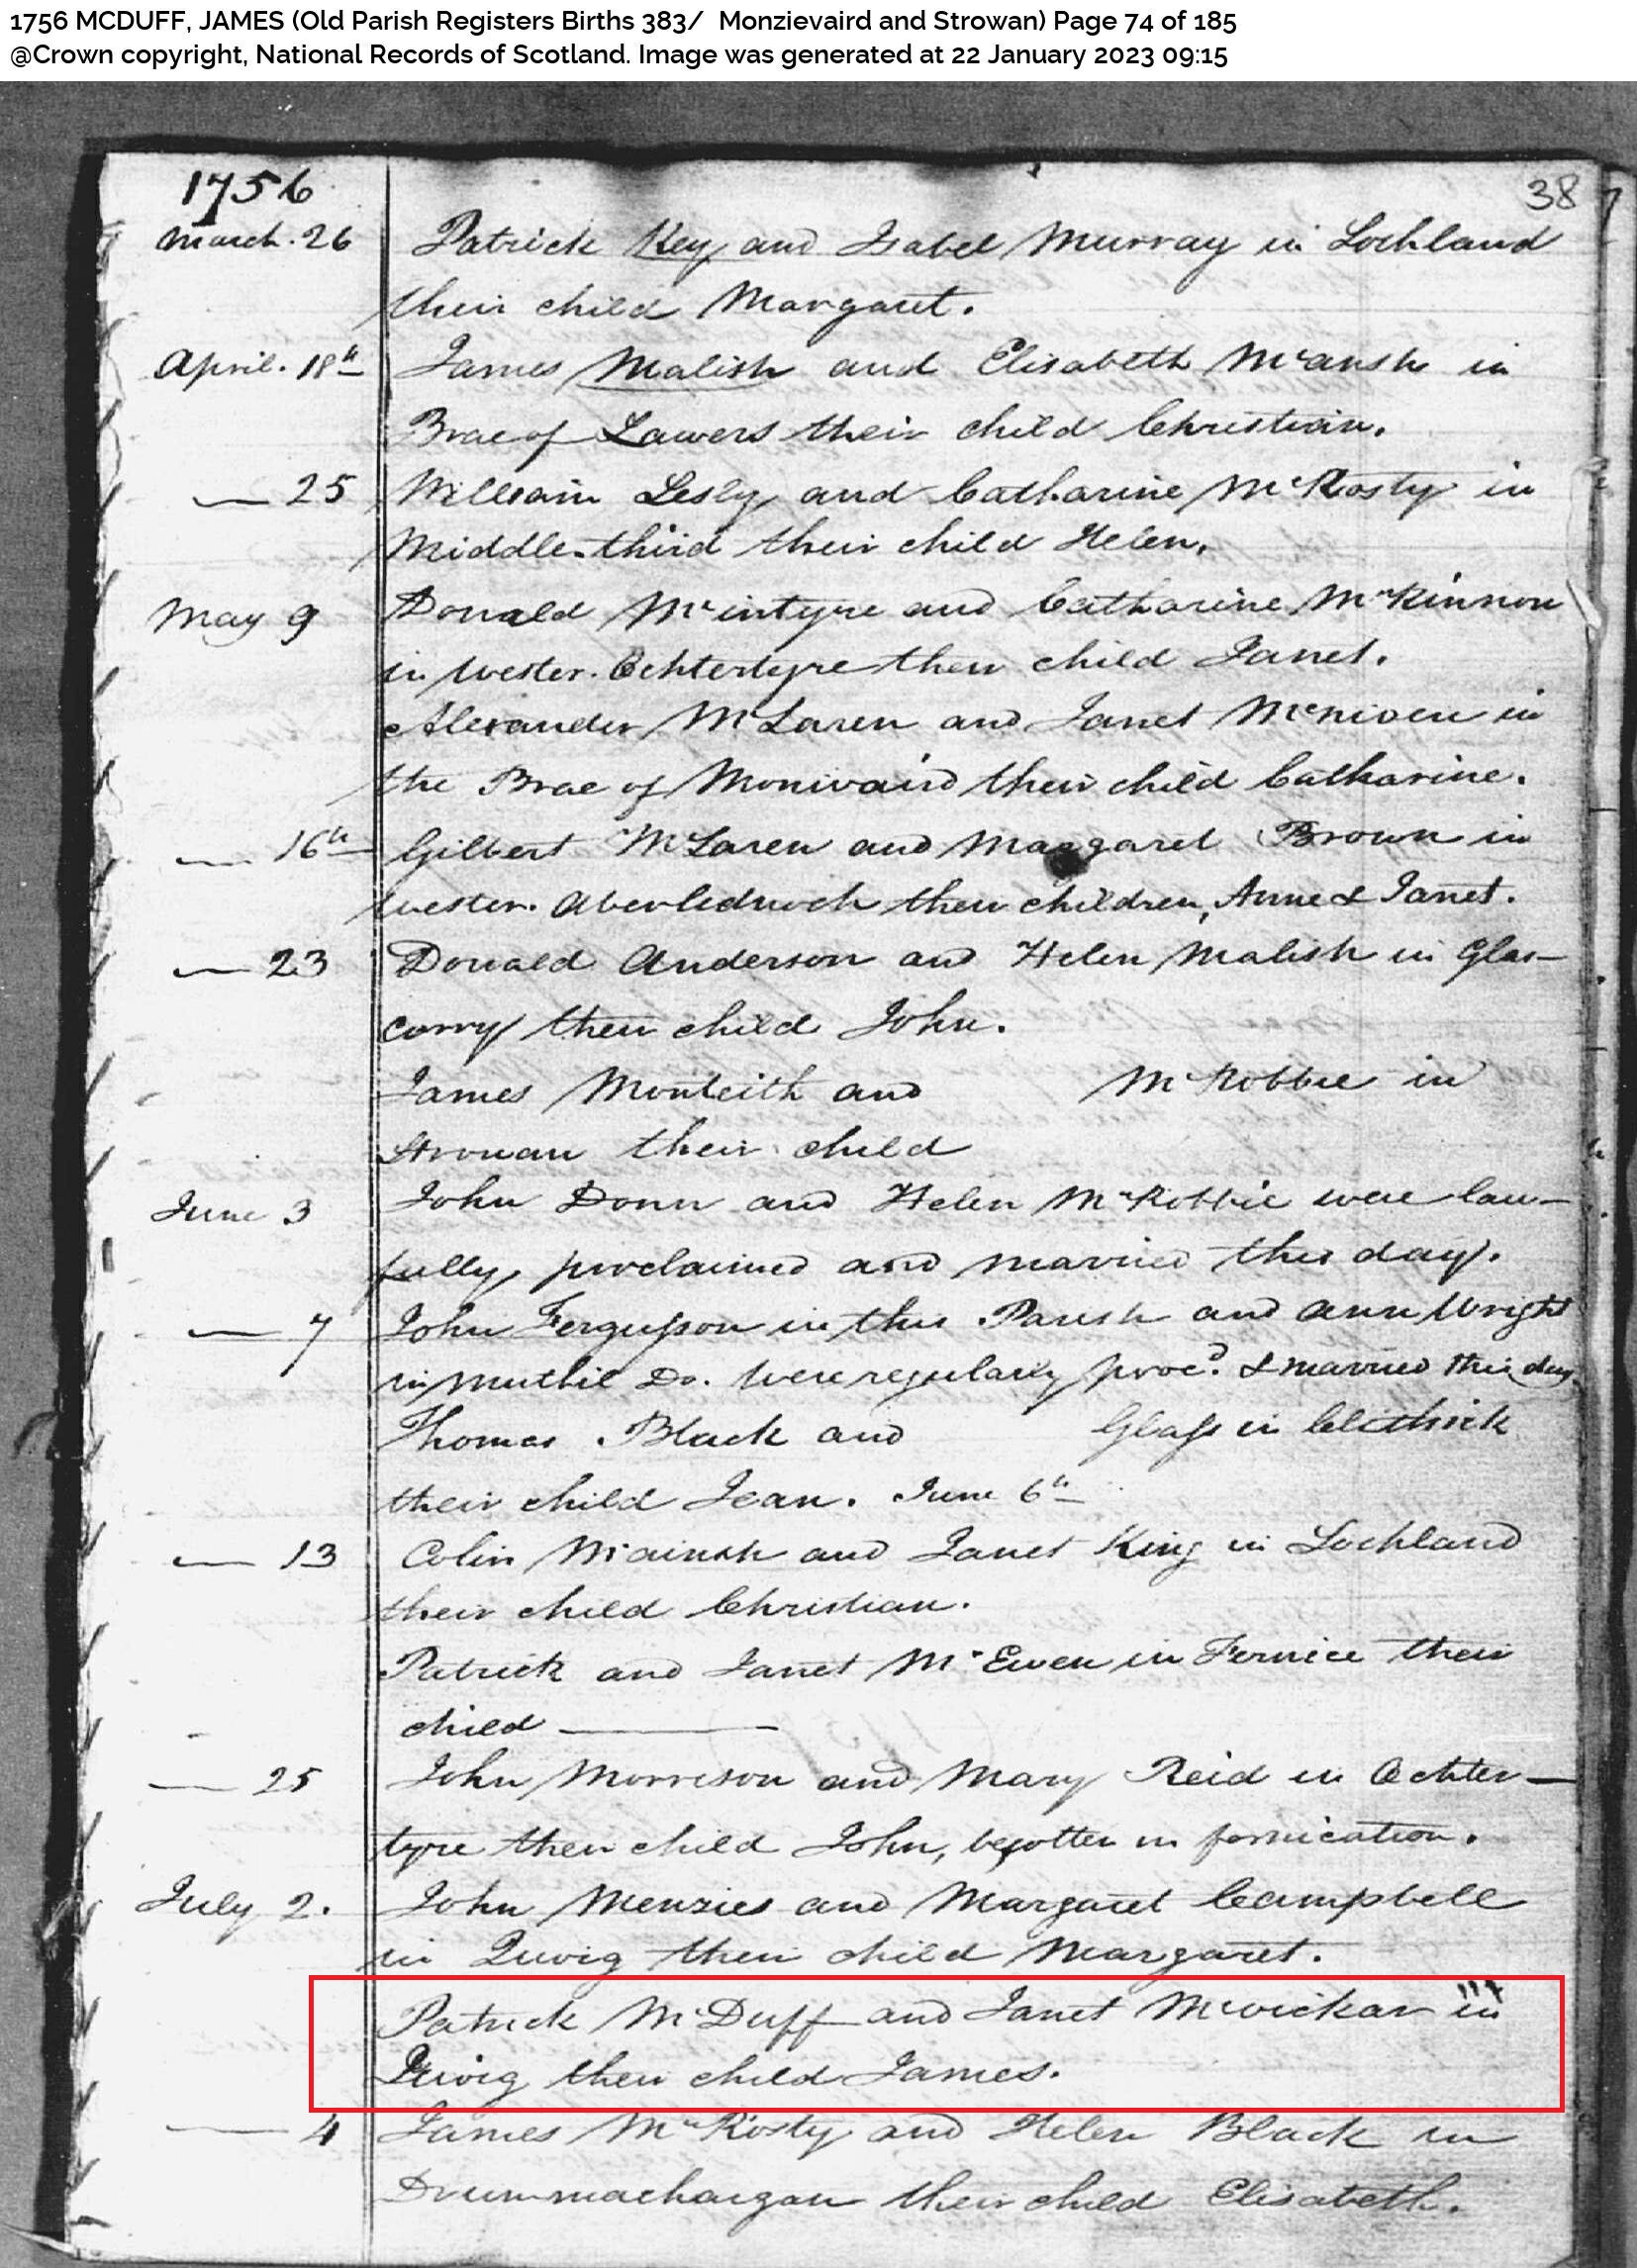 1756 MCDUFF, JAMES (Old Parish Registers Births 383/ Monzievaird and Strowan) Page 74 of 185
@Crown copyright, National Records of Scotland. Image was generated at 22 January 2023 09:15
1756
38
March. 26 Patrick Key and Isabel Murray in Lochland
their child Margaret.
April. 18th James Malish and Elisabeth McAnsh in
Brae of Lawers their child Christian.
— 25 William Lesly and Catharine McRosty in
Middle-third their child Helen.
May 9 Donald McIntyre and Catharine McKinnon
in Wester. Echtertyre their child Janet.
Alexander McLaren and Janet McNiven in
the Brae of Monivaird their child Catharine.
— 16th Gilbert McLaren and Margaret Brown in
Wester. Aberlednoch their children, Anne & Janet.
— 23 Donald Anderson and Helen Malish in Glas-
corry their child John.
James Monteith and McRobbie in
Strouan their child
June 3 John Donn and Helen McRobbie were law-
fully proclaimed and married this day.
— 7 John Ferguson in this Parish and Ann Wright
in Muthil Do. were regularly procd. & married this day
Thomas Black and Glass in
their child Jean. June 6th
— 13 Colin McAinsh and Janet King in Lochland
their child Christian.
Patrick and Janet McEwen in Fernice their
child —
— 25 John Morrison and Mary Reid in Ochter-
tyre their child John, begotten in fornication.
July 2. John Menzies and Margaret Campbell
in Quoig their child Margaret.
Patrick McDuff and Janet McVickar in
Quoig their child James.
— 4 James McRosty and Helen Black in
Drummachargan their child Elisabeth.